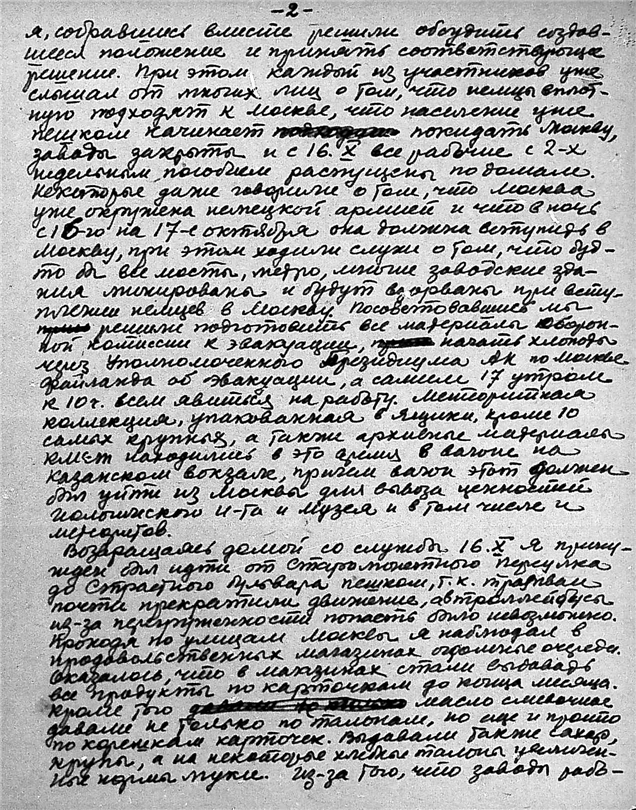 -2-
я, собравшись вместе решили обсудить создав-
шееся положение и принять соответствующее
решение. При этом каждый из участников уже
слышал от многих лиц о том, что немцы вплот-
ную подходят к Москве, что население уже
пешком начинает покидать Москву,
заводы закрыты и с 16.X все рабочие с 2-х
недельным пособием распущены по домам.
Некоторые даже говорили о том, что Москва
уже окружена немецкой армией и что в ночь
с 16-го на 17-е октября она должна вступить в
Москву, при этом ходили слухи о том, что буд-
то бы все мосты, метро, многие заводские зда-
ния минированы и будут взорваны при всту-
плении немцев в Москву. Посоветовавшись мы
решили подготовить все материалы оборон-
ной комиссии к эвакуации, начать хлопоты
через Уполномоченного Президиума АН по Москве
об эвакуации, а самим 17 утром
к 10 ч. всем явиться на работу. Метеоритная
коллекция, упакованная в ящики, кроме 10
самых крупных, а также архивные материалы
находились в это время в вагоне на
Казанском вокзале, причем вагон этот должен
был уйти из Москвы для вывоза ценностей
Геологического И-та и музея и в том числе и
метеоритов.
Возвращаясь домой со службы 16.X я прину-
жден был идти от Старомонетного переулка
до Страстного бульвара пешком, т.к. трамваи
почти прекратили движение, а в троллейбусы
из-за перегруженности попасть было невозможно.
Проходя по улицам Москвы я наблюдал в
продовольственных магазинах огромные очереди.
Оказалось, что в магазинах стали выдавать
все продукты по карточкам до конца месяца.
Кроме того масло сливочное
давали не только по талонам, но еще и просто
по корешкам карточек. Выдавали также сахар,
крупы, а на некоторые хлебные талоны увеличен-
ные нормы муки. Из-за того, что заводы рабо-